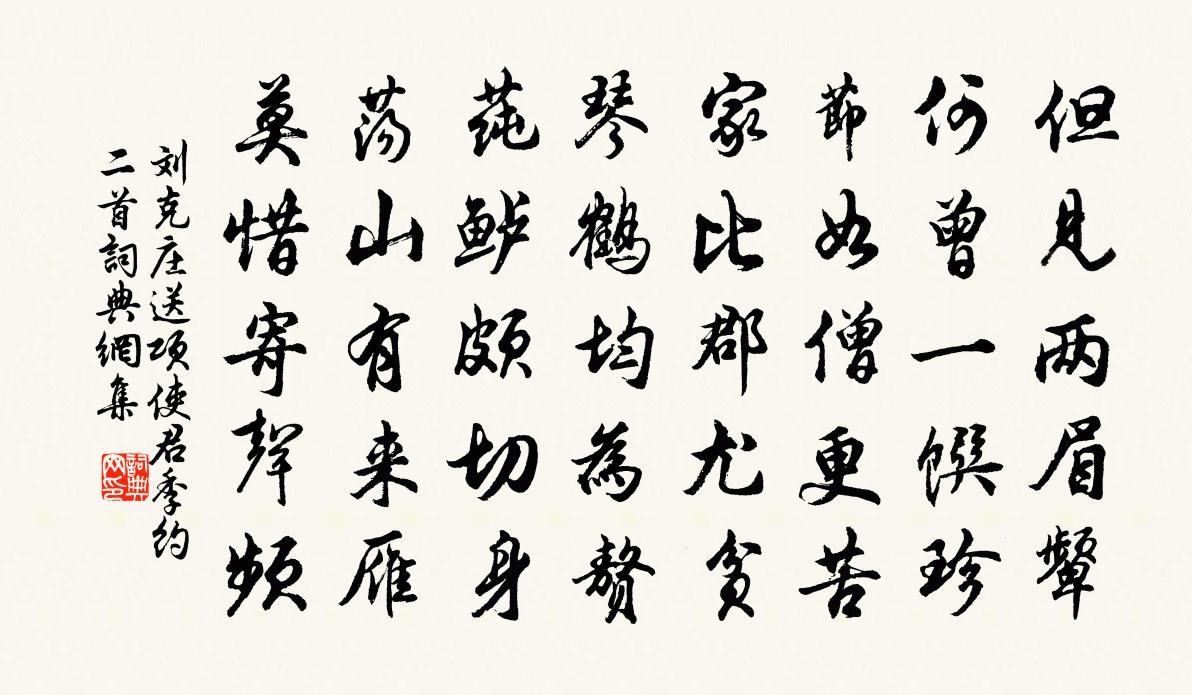 但见两眉颦
何曾一馔珍
節如僧更苦
家比郡尤贫
琴鹤均為赘
莼鲈颇切身
荡山有来雁
莫惜寄聲频
刘克庄送项使君季约
二首詞典網集
詞典
网印